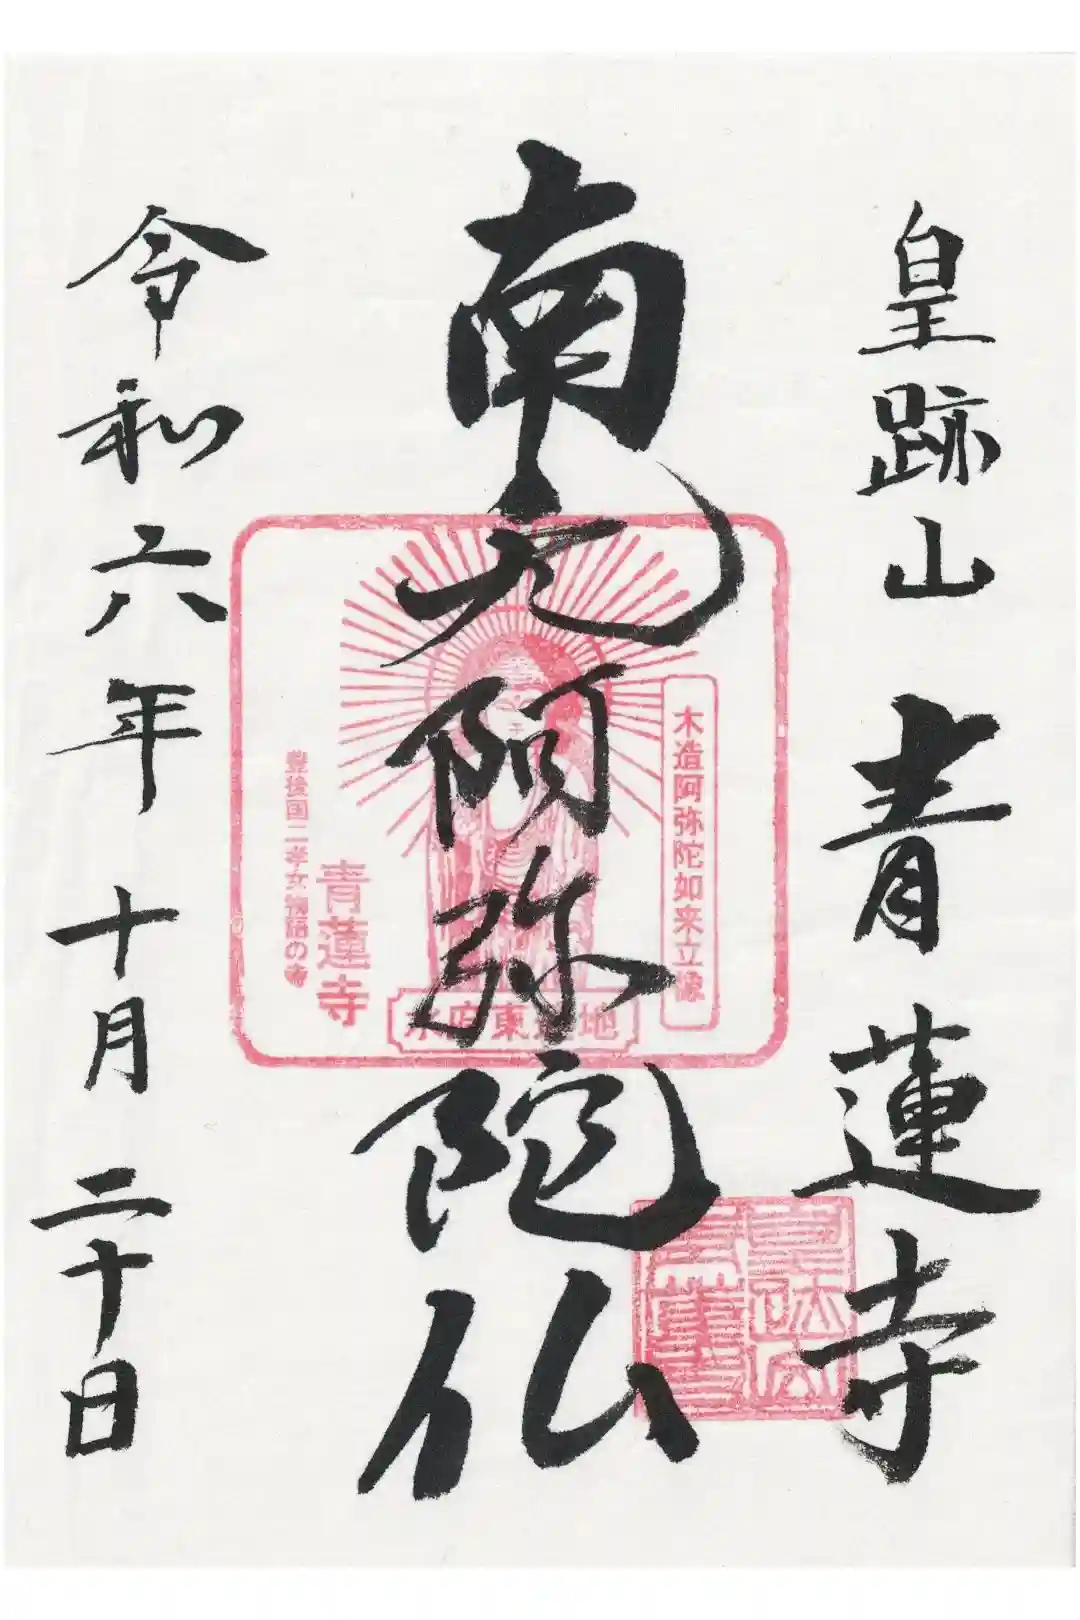 皇跡山 青蓮寺
南无阿弥陀仏
令和六年十月二十日
木造阿弥陀如来立像
豊後国二孝女物語の寺
青蓮寺
水府東■地